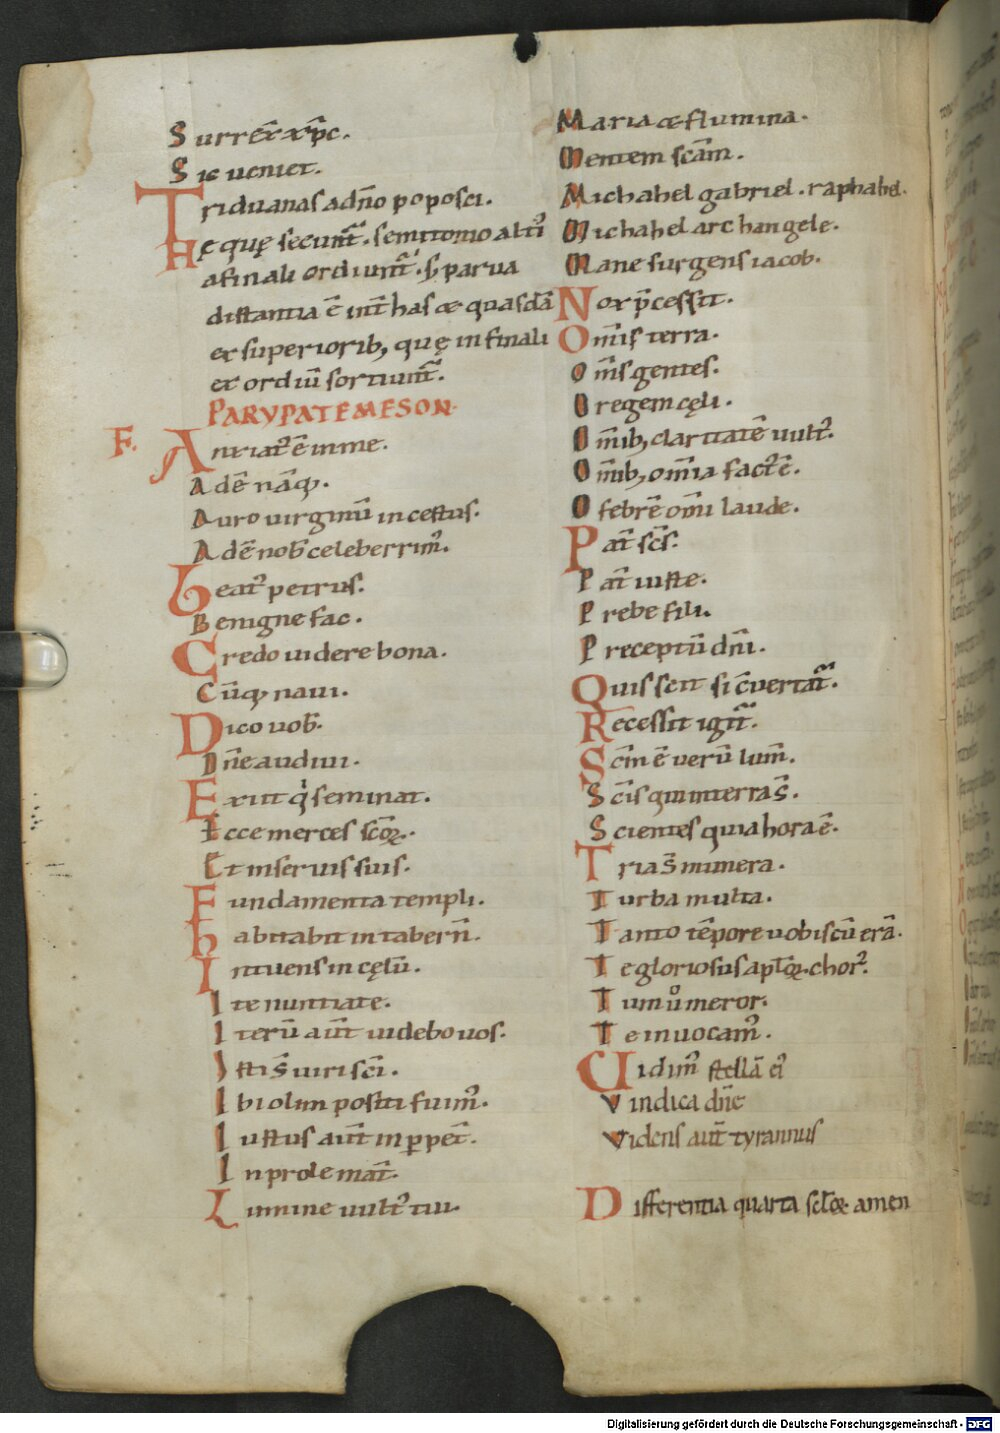 Surrex̄ xp̄c.
Sic ueniet.
Triduanas a dn̄o poposci.
Hę quę secunt̄. semitonio alti᷒
a finali ordiunt̄. s; parua
distantia ē int̄ has & quasdā
ex superiorib; quę in finali
et ordiū sortiunt̄.
PARYPATE MESON.
F. Anxiat᷒ ē in me.
Adē nāq;.
Auro uirginū incestus.
Adē nob̄ celeberrim᷒.
Beat᷒ petrus.
Benigne fac.
Credo uidere bona.
Cūq; naui.
Dico uob̄.
Dn̄e audiui.
Exiit q̇ seminat.
Ecce merces scōꝝ.
Et in seruis suis.
Fundamenta templi.
habitabit in tabern̄.
Intuens in cęlū.
Ite nuntiate.
Iterū aūt uidebo uos.
Isti s̄ uiri sc̄i.
Ibi olim positi fuim᷒.
Iustus aūt in ꝑpet̄.
In prole mat̄.
Lumine uult᷒ tui.
Maria & flumina.
Mentem scām.
Michahel gabriel. raphahel.
Michahel archangele.
Mane surgens iacob.
Nox p̄cessit.
Om̄is terra.
Om̄s gentes.
O regem cęli.
Om̄ib; claritatē uult᷒.
Om̄ib; om̄ia fact᷒ ē.
O febrē om̄i laude.
Pat̄ sc̄s.
Pat̄ iuste.
Prebe fili.
Preceptū dn̄i.
Quis scit si c̄uertat̄.
Recessit igit̄.
Sc̄m ē uerū lum̄.
Sc̄is qui in terra s̄.
Scientes quia hora ē.
Tria s̄ munera.
Turba multa.
Tanto tēpore uobiscū erā.
Te gloriosus aptl̄oꝝ. chor᷒.
Tum ů meror.
Te inuocam᷒.
Uidim᷒ stellā ei᷒
Vindica dn̄e
Videns aūt tyrannus
Differentia quarta scl̄oꝝ. amen
Digitalisierung gefördert durch die Deutsche Forschungsgemeinschaft - DFG